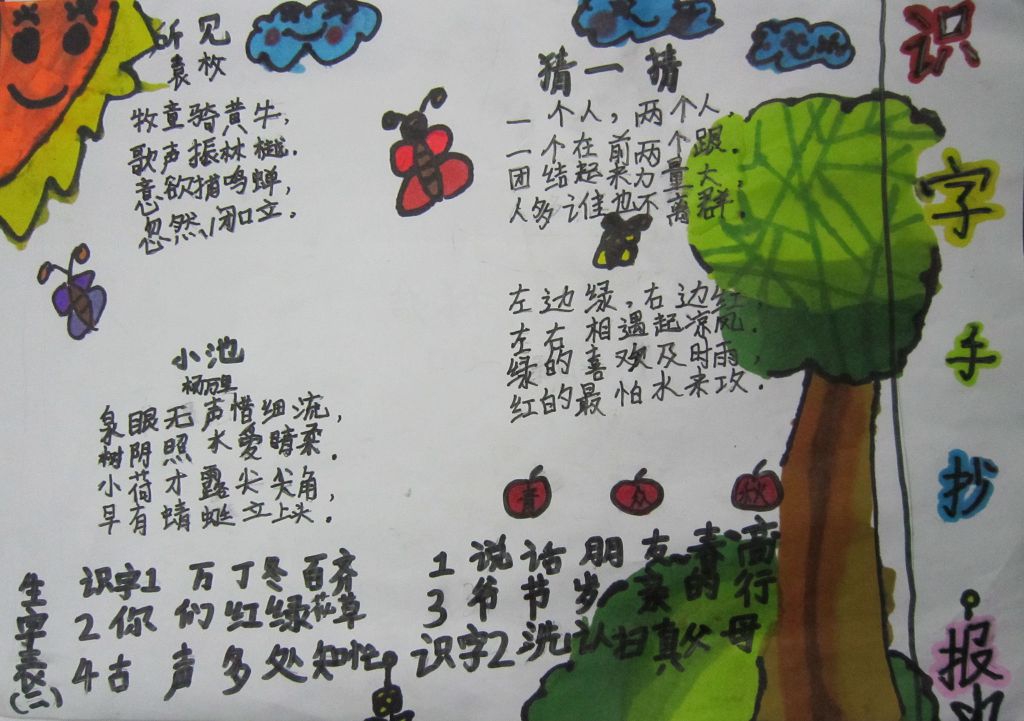 所见
袁枚
牧童骑黄牛，
歌声振林樾。
意欲捕鸣蝉，
忽然闭口立。
小池
杨万里
泉眼无声惜细流，
树阴照水爱晴柔。
小荷才露尖尖角，
早有蜻蜓立上头。
猜一猜
一个人，两个人，
一个在前两个跟.
团结起来力量大，
人多谁也不离群.
左边绿，右边红，
左右相遇起凉风.
绿的喜欢及时雨，
红的最怕水来攻.
青 众 秋
生字表(二)
识字1 万丁冬百齐
2 你们红绿花草
4 古声多处知忙
1 说话朋友春高
3 爷节岁亲的行
识字2 洗认扫真父母
识字手抄报